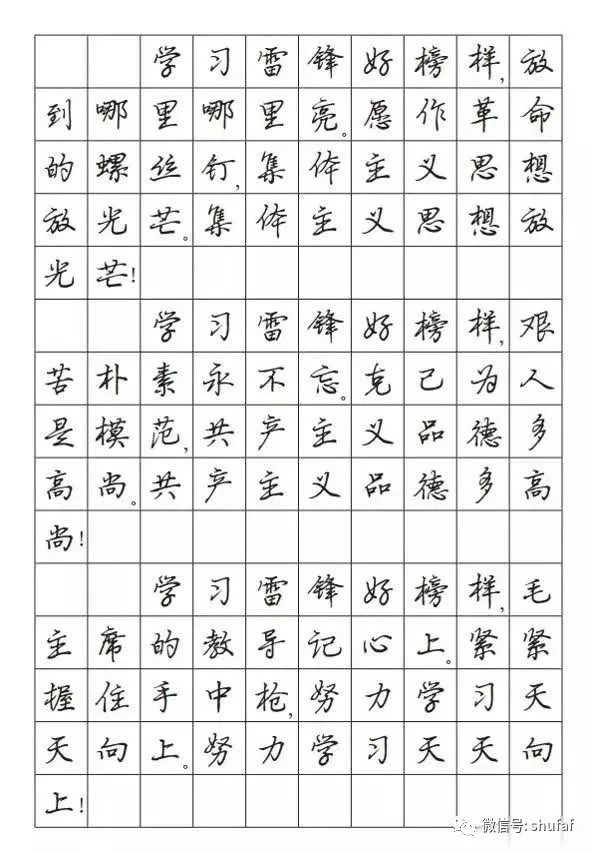 学习雷锋好榜样,放
到哪里哪里亮。愿作革命
的螺丝钉,集体主义思想
放光芒。集体主义思想放
光芒!
学习雷锋好榜样,艰
苦朴素永不忘。克己为人
是模范,共产主义品德多
高尚。共产主义品德多高
尚!
学习雷锋好榜样,毛
主席的教导记心上。紧紧
握住手中枪,努力学习天
天向上。努力学习天天向
上!
微信号: shufaf